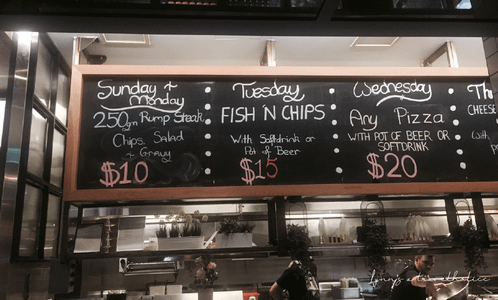 Sunday +
Monday
250gm Rump Steak
Chips, Salad
+ Gravy
$10
Tuesday
FISH 'N CHIPS
With Softdrink or
Pot of Beer
$15
Wednesday
Any Pizza
WITH POT OF BEER OR
SOFTDRINK
$20
Th
CHEESE
With